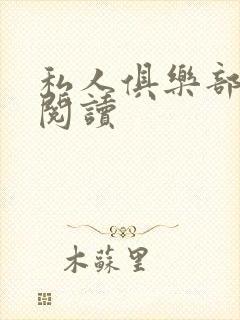 私人俱樂部
閱讀
木蘇里